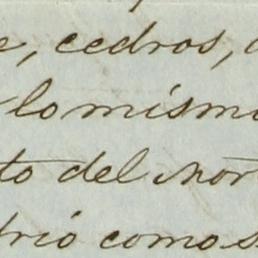 e, cedros,
lo mismo
to del Nor
trió como s